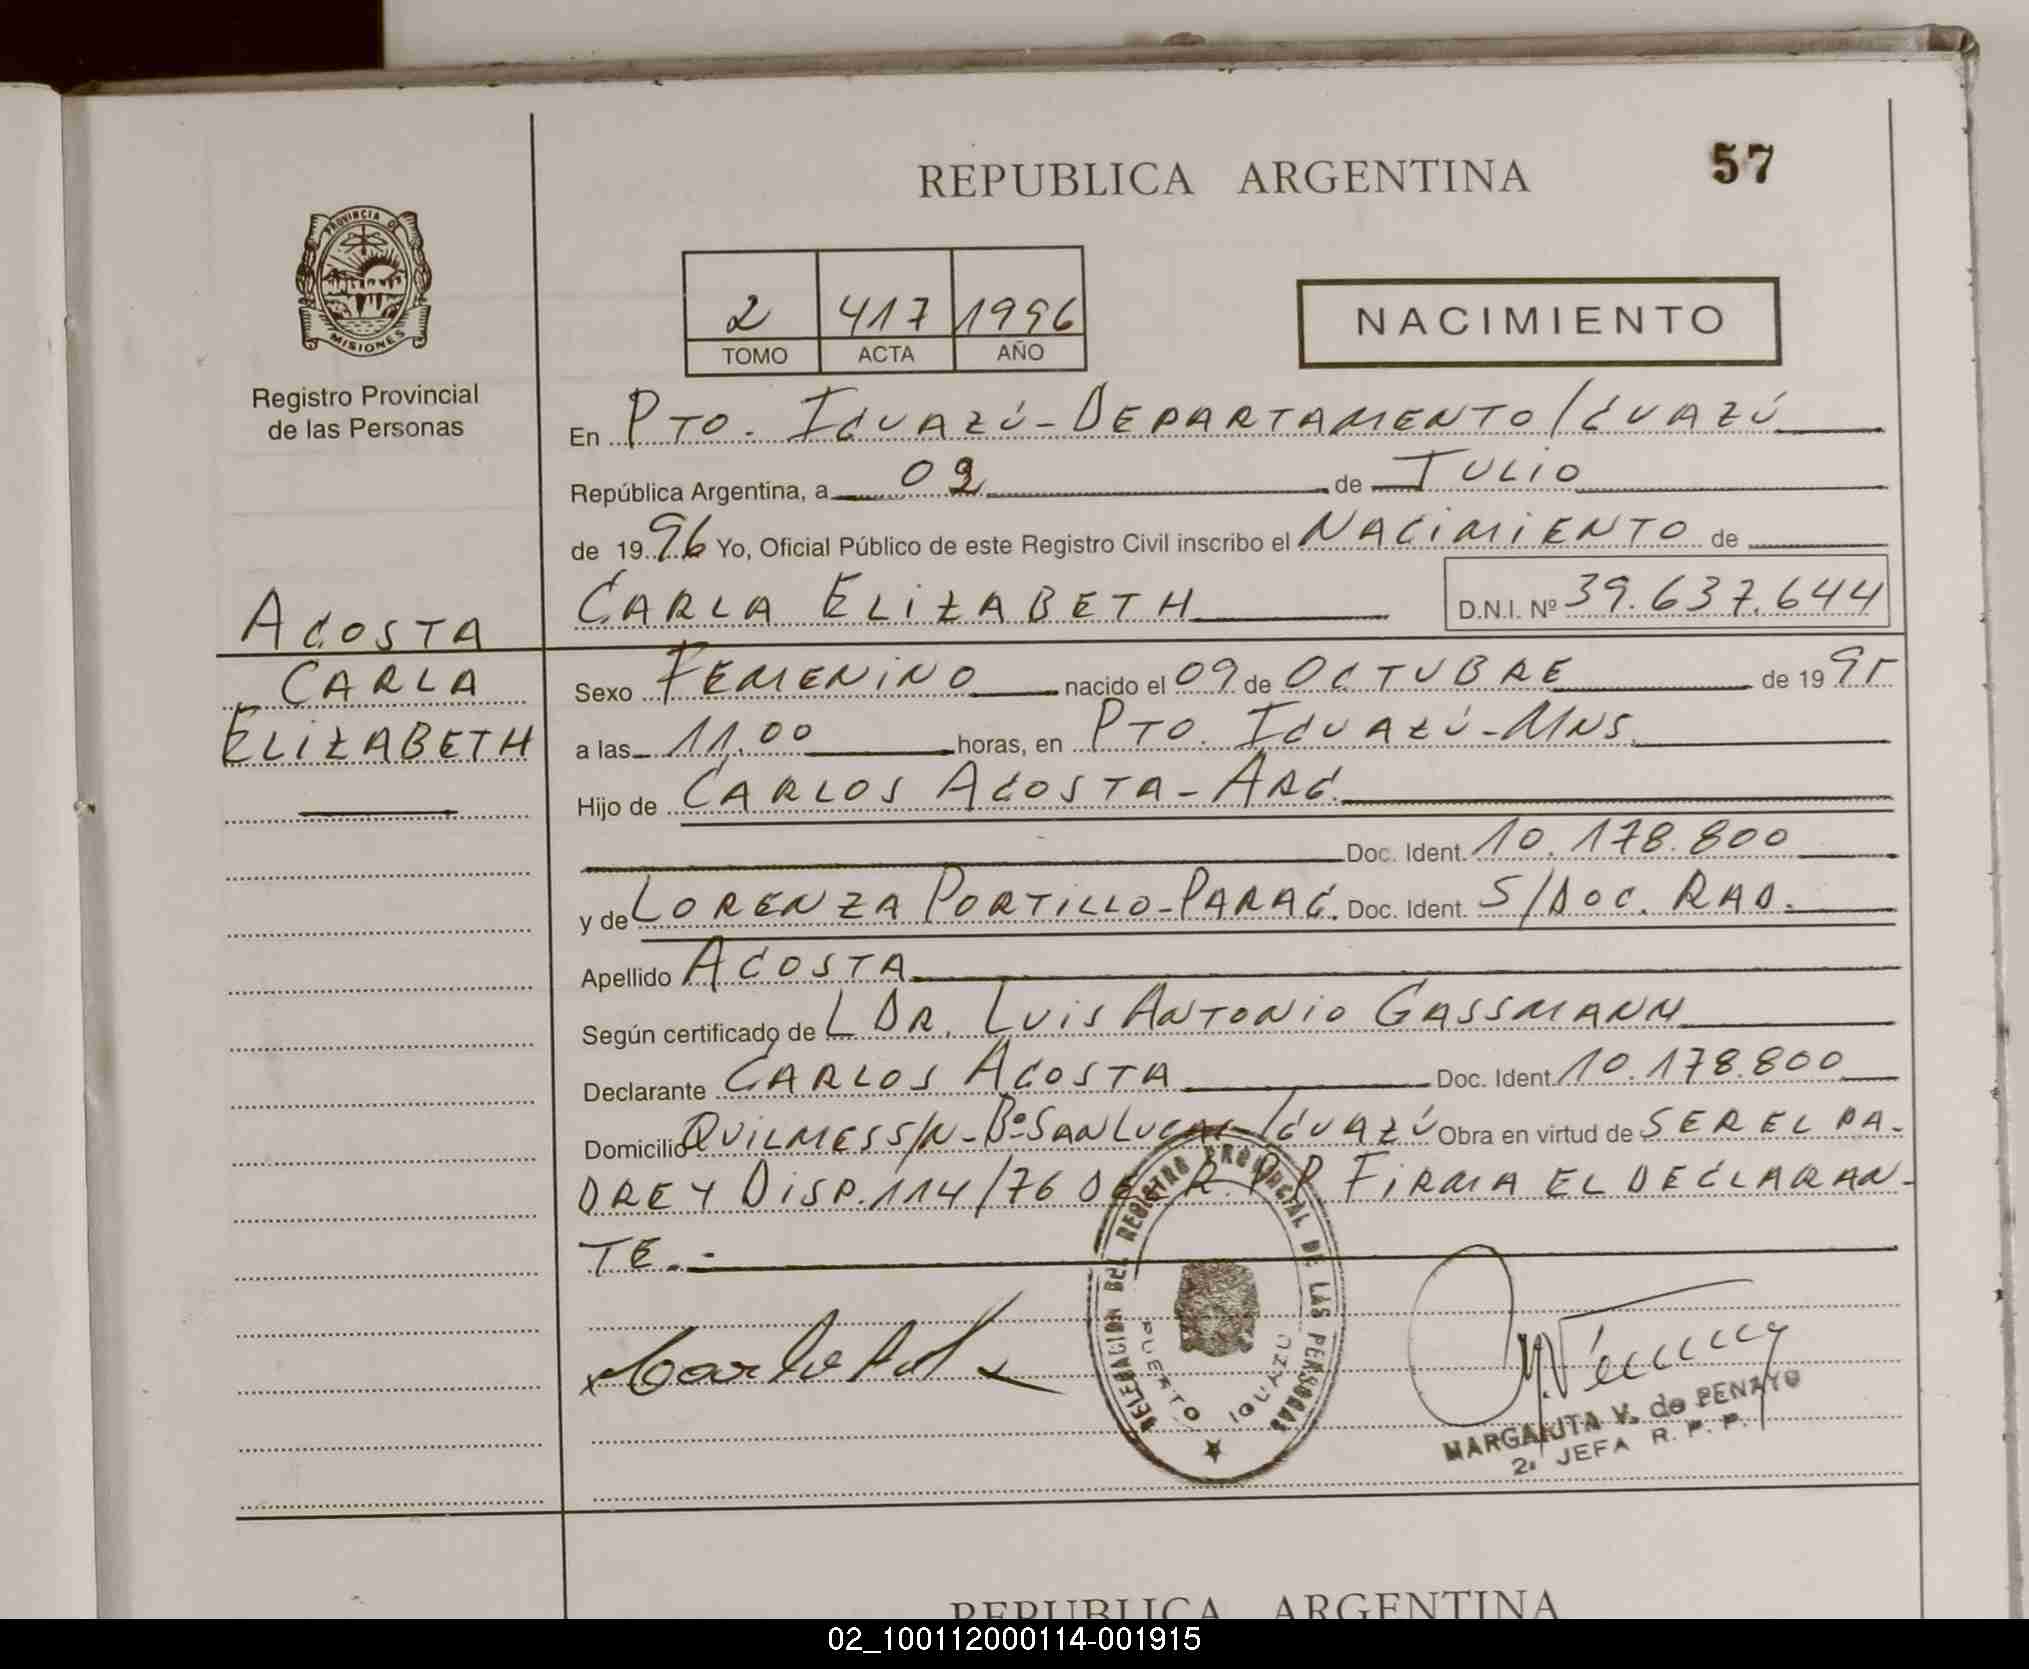 REPUBLICA ARGENTINA
57
PROVINCIA DE
MISIONES
Registro Provincial
de las Personas
2 417 1996
TOMO ACTA AÑO
NACIMIENTO
En PTO. IGUAZÚ - DEPARTAMENTO IGUAZÚ
República Argentina, a 02 de JULIO
de 1996 Yo, Oficial Público de este Registro Civil inscribo el NACIMIENTO de
CARLA ELIZABETH D.N.I. Nº 39.637.644
ACOSTA
CARLA
ELIZABETH
Sexo FEMENINO nacido el 09 de OCTUBRE de 1995
a las 11,00 horas, en PTO. IGUAZÚ - MNS.
Hijo de CARLOS ACOSTA - ARG.
Doc. Ident. 10.178.800
y de LORENZA PORTILLO - PARAG. Doc. Ident. S/DOC. RAD.
Apellido ACOSTA
Según certificado de L DR. LUIS ANTONIO GASSMANN
Declarante CARLOS ACOSTA Doc. Ident. 10.178.800
Domicilio QUILMES S/N - Bº SAN LUCAS - IGUAZÚ Obra en virtud de SER EL PA-
DRE Y DISP. 114/76 DEL R.P.P FIRMA EL DECLARAN-
TE.-
DELEGACION DEL REGISTRO PROVINCIAL DE LAS PERSONAS
PUERTO IGUAZU
MARGARITA V. de PENAYO
2ª JEFA R. P. P.
REPUBLICA ARGENTINA
02_100112000114-001915